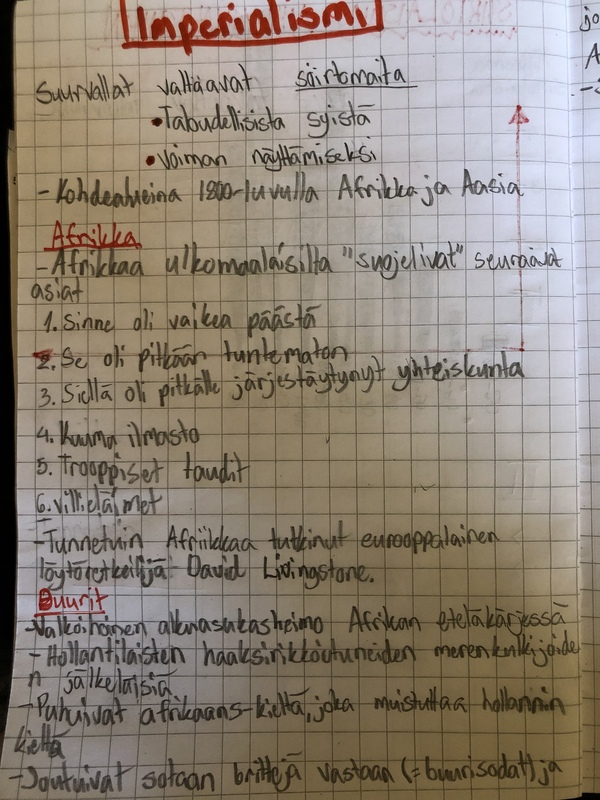 Imperialismi
Suurvallat valtaavat siirtomaita
•Taloudellisista syistä
•Voiman näyttämiseksi
- Kohdealueina 1800-luvulla Afrikka ja Aasia
Afrikka
- Afrikkaa ulkomaalaisilta "suojelivat" seuraavat
asiat
1. Sinne oli vaikea päästä
2. Se oli pitkään tuntematon
3. Siellä oli pitkälle järjestäytynyt yhteiskunta
4. Kuuma ilmasto
5. Trooppiset taudit
6. villieläimet
- Tunnetuin Afriikkaa tutkinut eurooppalainen
löytöretkeilijä David Livingstone.
Buurit
- Valkoihoinen alkuasukasheimo Afrikan eteläkärjessä
- Hollantilaisten haaksirikkoutuneiden merenkulkijoide
n jälkeläisiä
- Puhuivat afrikaans-kieltä, joka muistuttaa hollannin
kieltä
- Joutuivat sotaan brittejä vastaan (= buurisodat) ja
jo
A